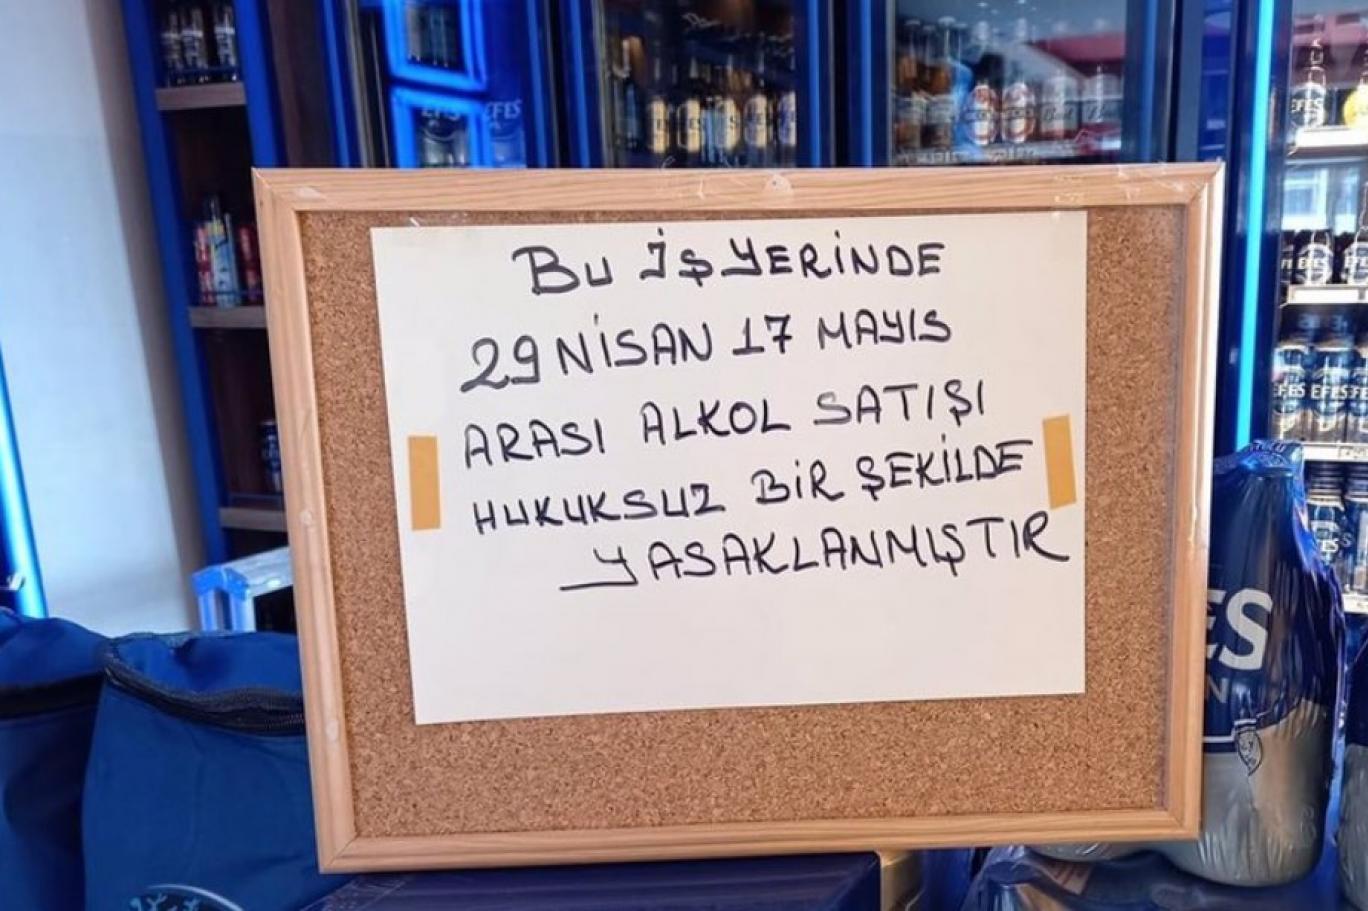 BU İŞ YERİNDE
29 NİSAN 17 MAYIS
ARASI ALKOL SATIŞI
HUKUKSUZ BİR ŞEKİLDE
YASAKLANMIŞTIR
EFES
EFES
EFES
EFES
EFES
EFES
EFES